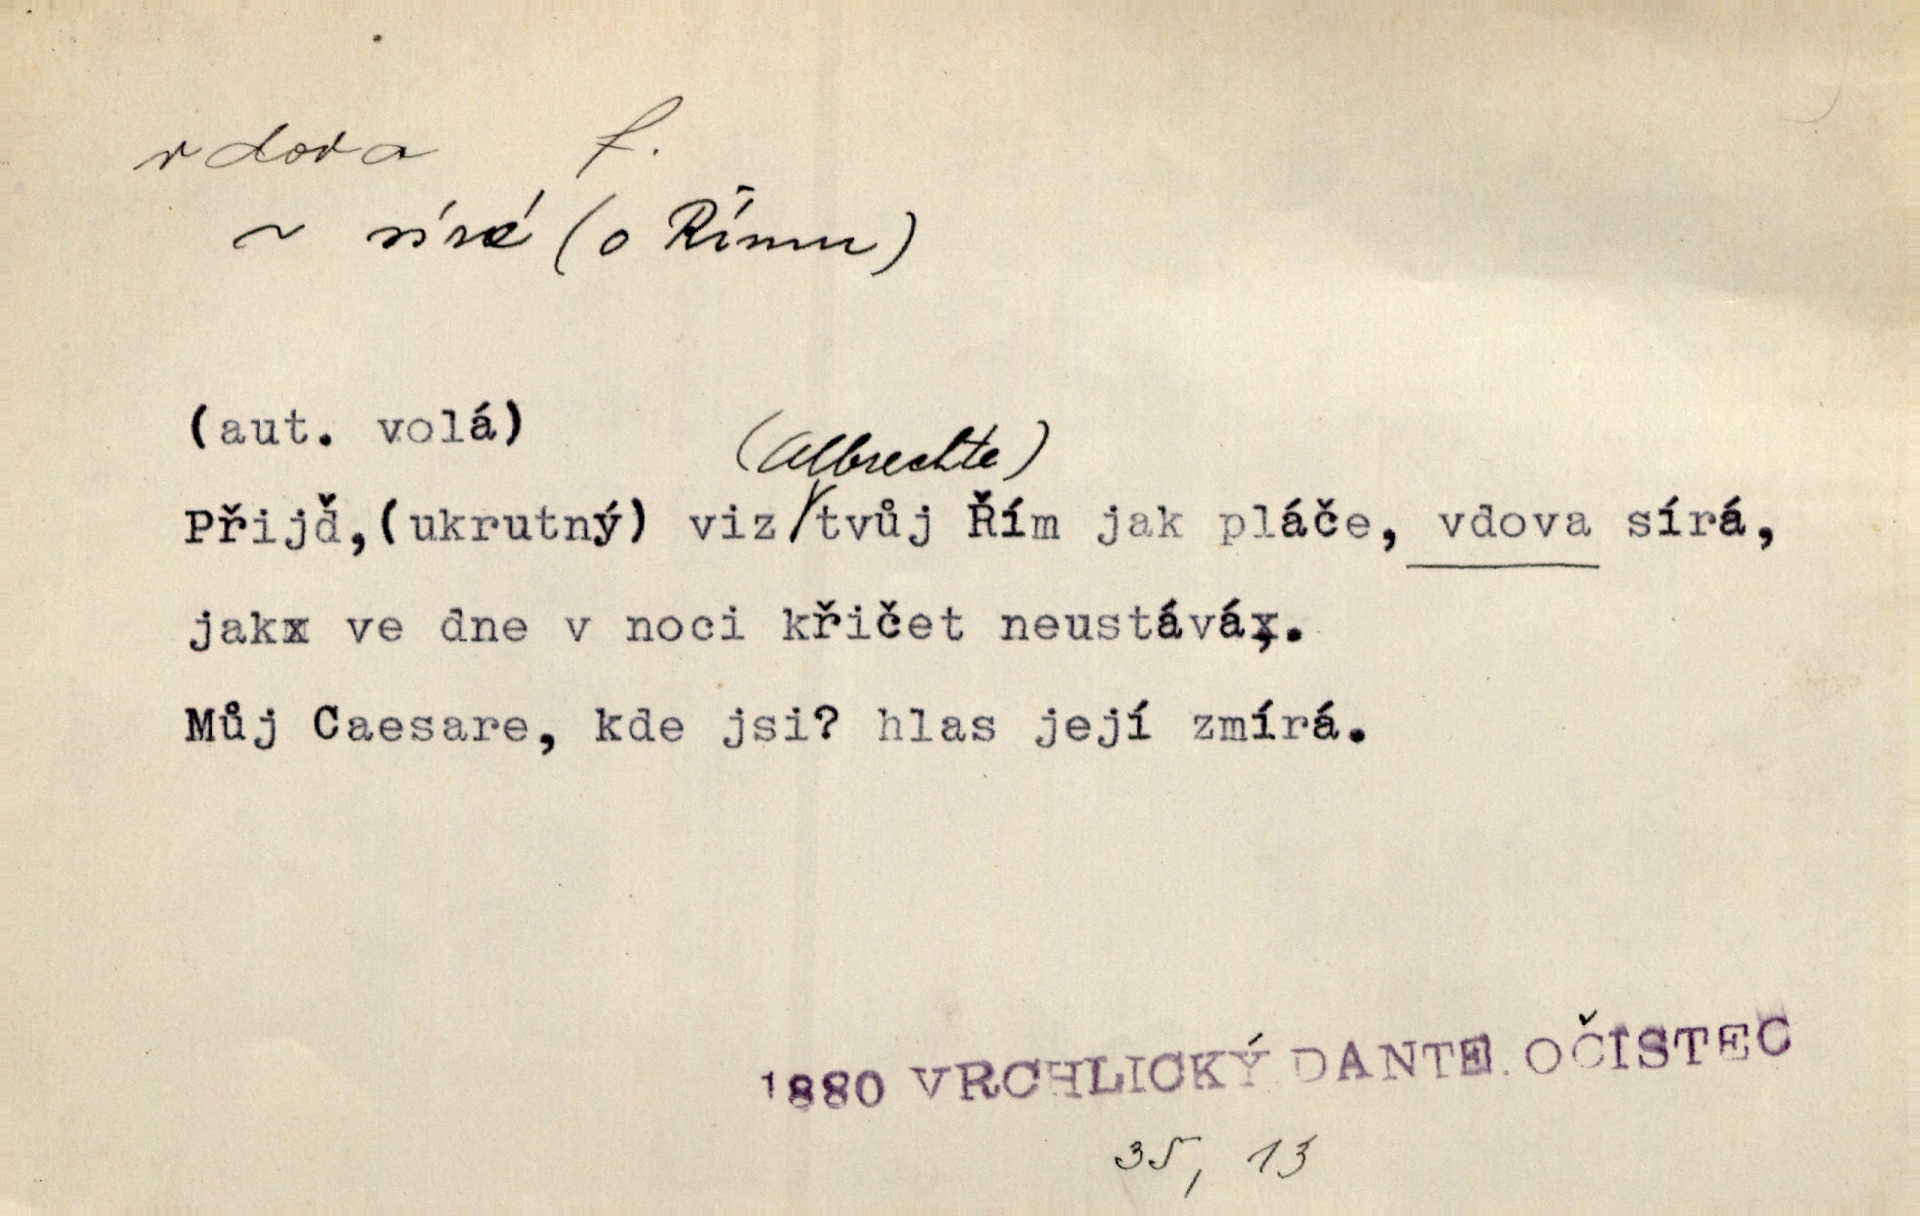 vdova f.
~ sírá (o Římu)
(aut. volá)
(Albrechte)
Přijď,(ukrutný) viz tvůj Řím jak pláče, vdova sírá,
jakx ve dne v noci křičet neustáváx.
Můj Caesare, kde jsi? hlas její zmírá.
1880 VRCHLICKÝ DANTE. OČISTEC
35, 13